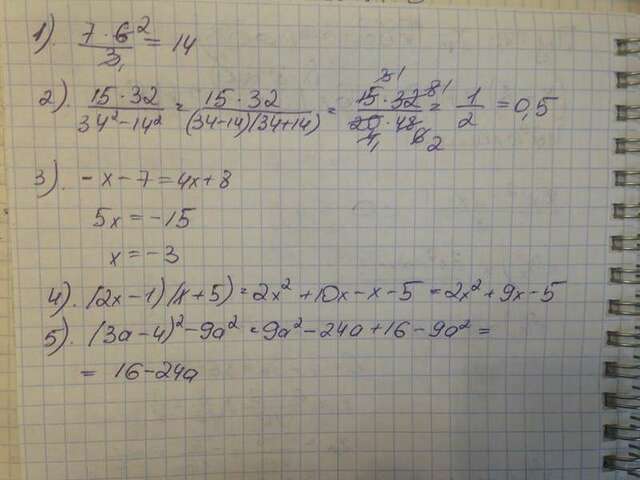 1). 7·6²/3₁ = 14
2). 15·32/34²-14² = 15·32/(34-14)(34+14) = 15·32/20·48 = 1/2 = 0,5
3). -x-7=4x+8
5x=-15
x=-3
4). (2x-1)(x+5)=2x²+10x-x-5=2x²+9x-5
5). (3a-4)²-9a²=9a²-24a+16-9a²=
= 16-24a